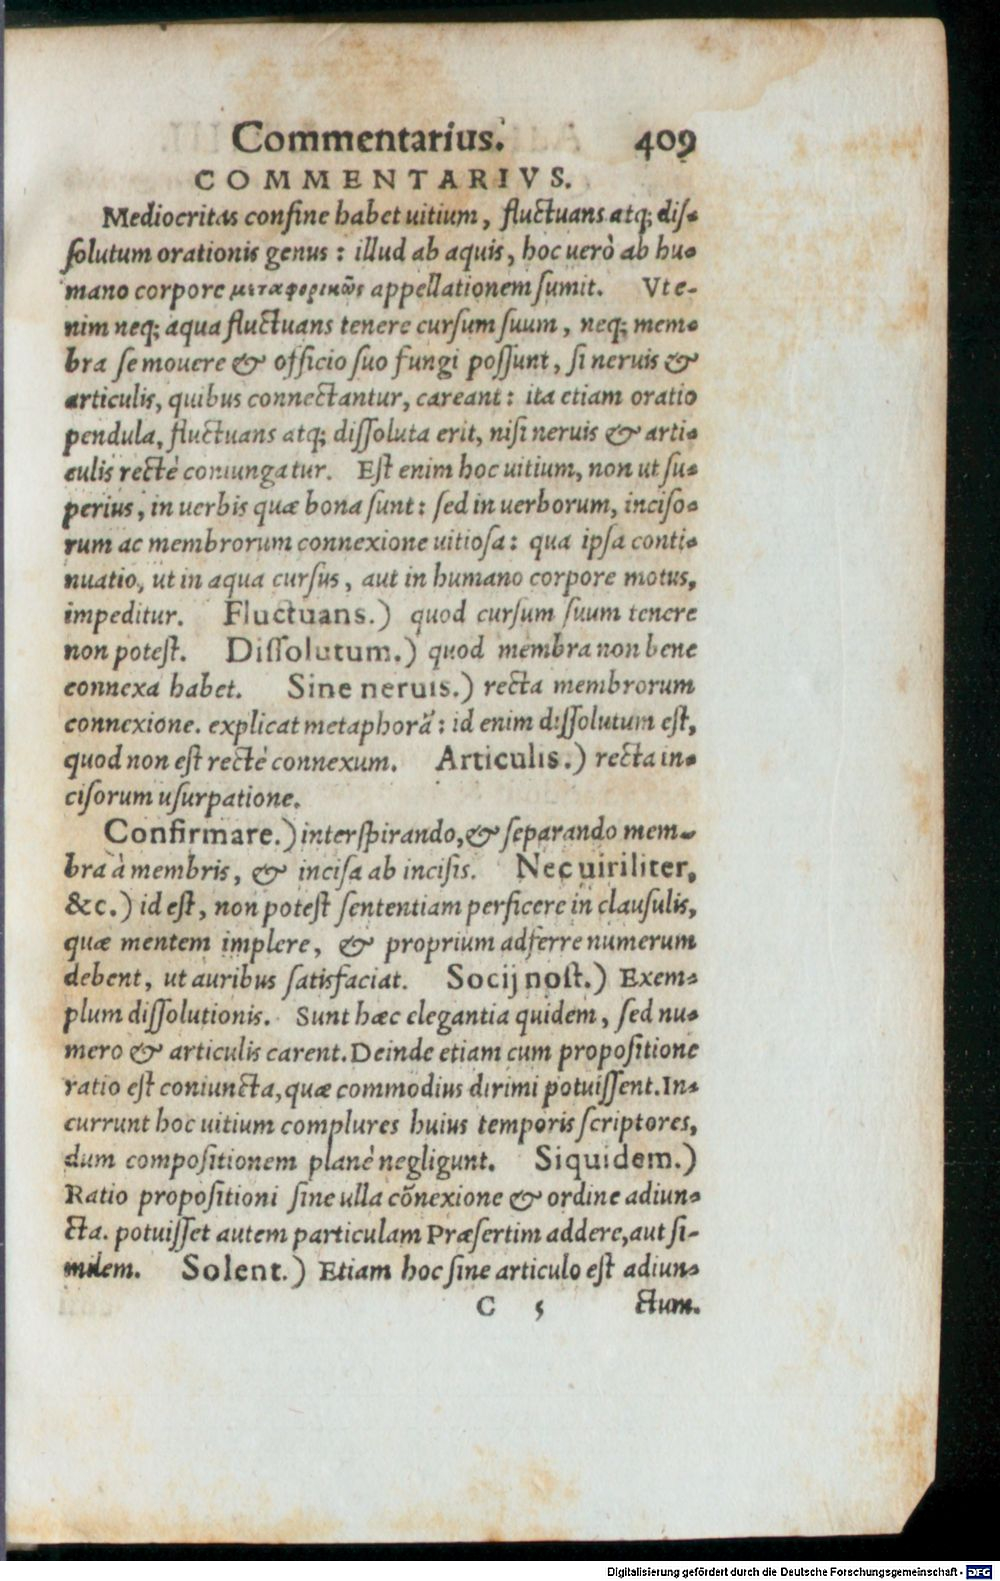 Commentarius. 409
COMMENTARIVS.
Mediocritas confine habet uitium, fluctuans atq; dis-
solutum orationis genus: illud ab aquis, hoc uerò ab hu-
mano corpore μεταφορικῶς appellationem sumit. Vte-
nim neq; aqua fluctuans tenere cursum suum, neq; mem-
bra se mouere & officio suo fungi possunt, si neruis &
articulis, quibus connectantur, careant: ita etiam oratio
pendula, fluctuans atq; dissoluta erit, nisi neruis & arti-
culis rectè coniungatur. Est enim hoc uitium, non ut su-
perius, in uerbis quæ bona sunt: sed in uerborum, inciso-
rum ac membrorum connexione uitiosa: qua ipsa conti-
nuatio, ut in aqua cursus, aut in humano corpore motus,
impeditur. Fluctuans.) quod cursum suum tenere
non potest. Dissolutum.) quod membra non bene
connexa habet. Sine neruis.) recta membrorum
connexione. explicat metaphorā: id enim dissolutum est,
quod non est rectè connexum. Articulis.) recta in-
cisorum usurpatione.
Confirmare.) interspirando, & separando mem-
bra à membris, & incisa ab incisis. Nec uiriliter,
&c.) id est, non potest sententiam perficere in clausulis,
quæ mentem implere, & proprium adferre numerum
debent, ut auribus satisfaciat. Socij nost.) Exem-
plum dissolutionis. Sunt hæc elegantia quidem, sed nu-
mero & articulis carent. Deinde etiam cum propositione
ratio est coniuncta, quæ commodius dirimi potuissent. In-
currunt hoc uitium complures huius temporis scriptores,
dum compositionem planè negligunt. Siquidem.)
Ratio propositioni sine ulla cōnexione & ordine adiun-
cta. potuisset autem particulam Præsertim addere, aut si-
milem. Solent.) Etiam hoc sine articulo est adiun-
C 5 ctum.
Digitalisierung gefördert durch die Deutsche Forschungsgemeinschaft - DFG